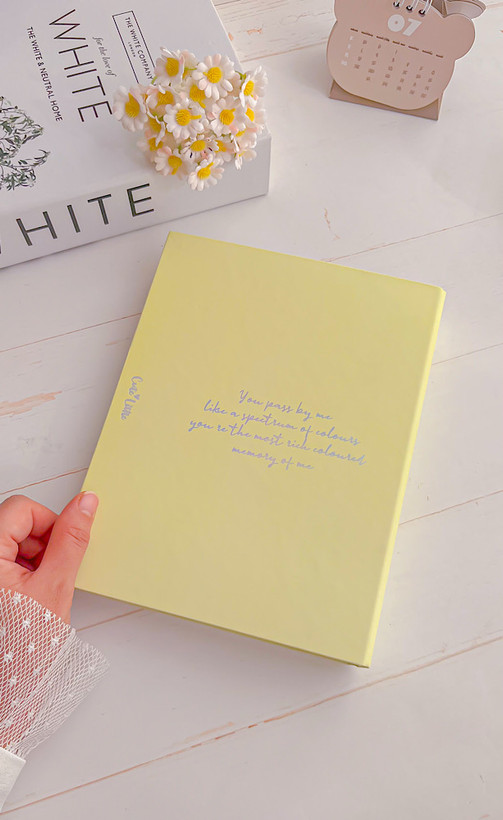 WHITE
for the love of
THE WHITE COMPANY
LONDON
THE WHITE & NEUTRAL HOME
WHITE
07
You pass by me
like a spectrum of colours
you're the most rich coloured
memory of me